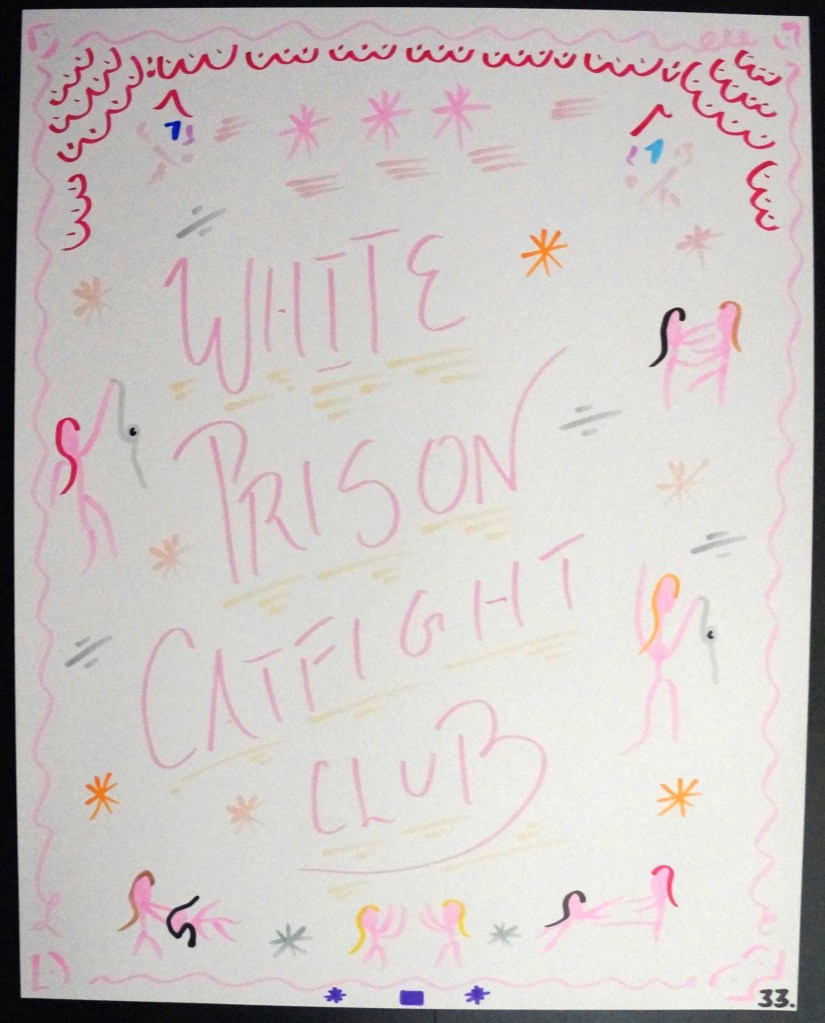 WHITE
PRISON
CATFIGHT
CLUB
33.